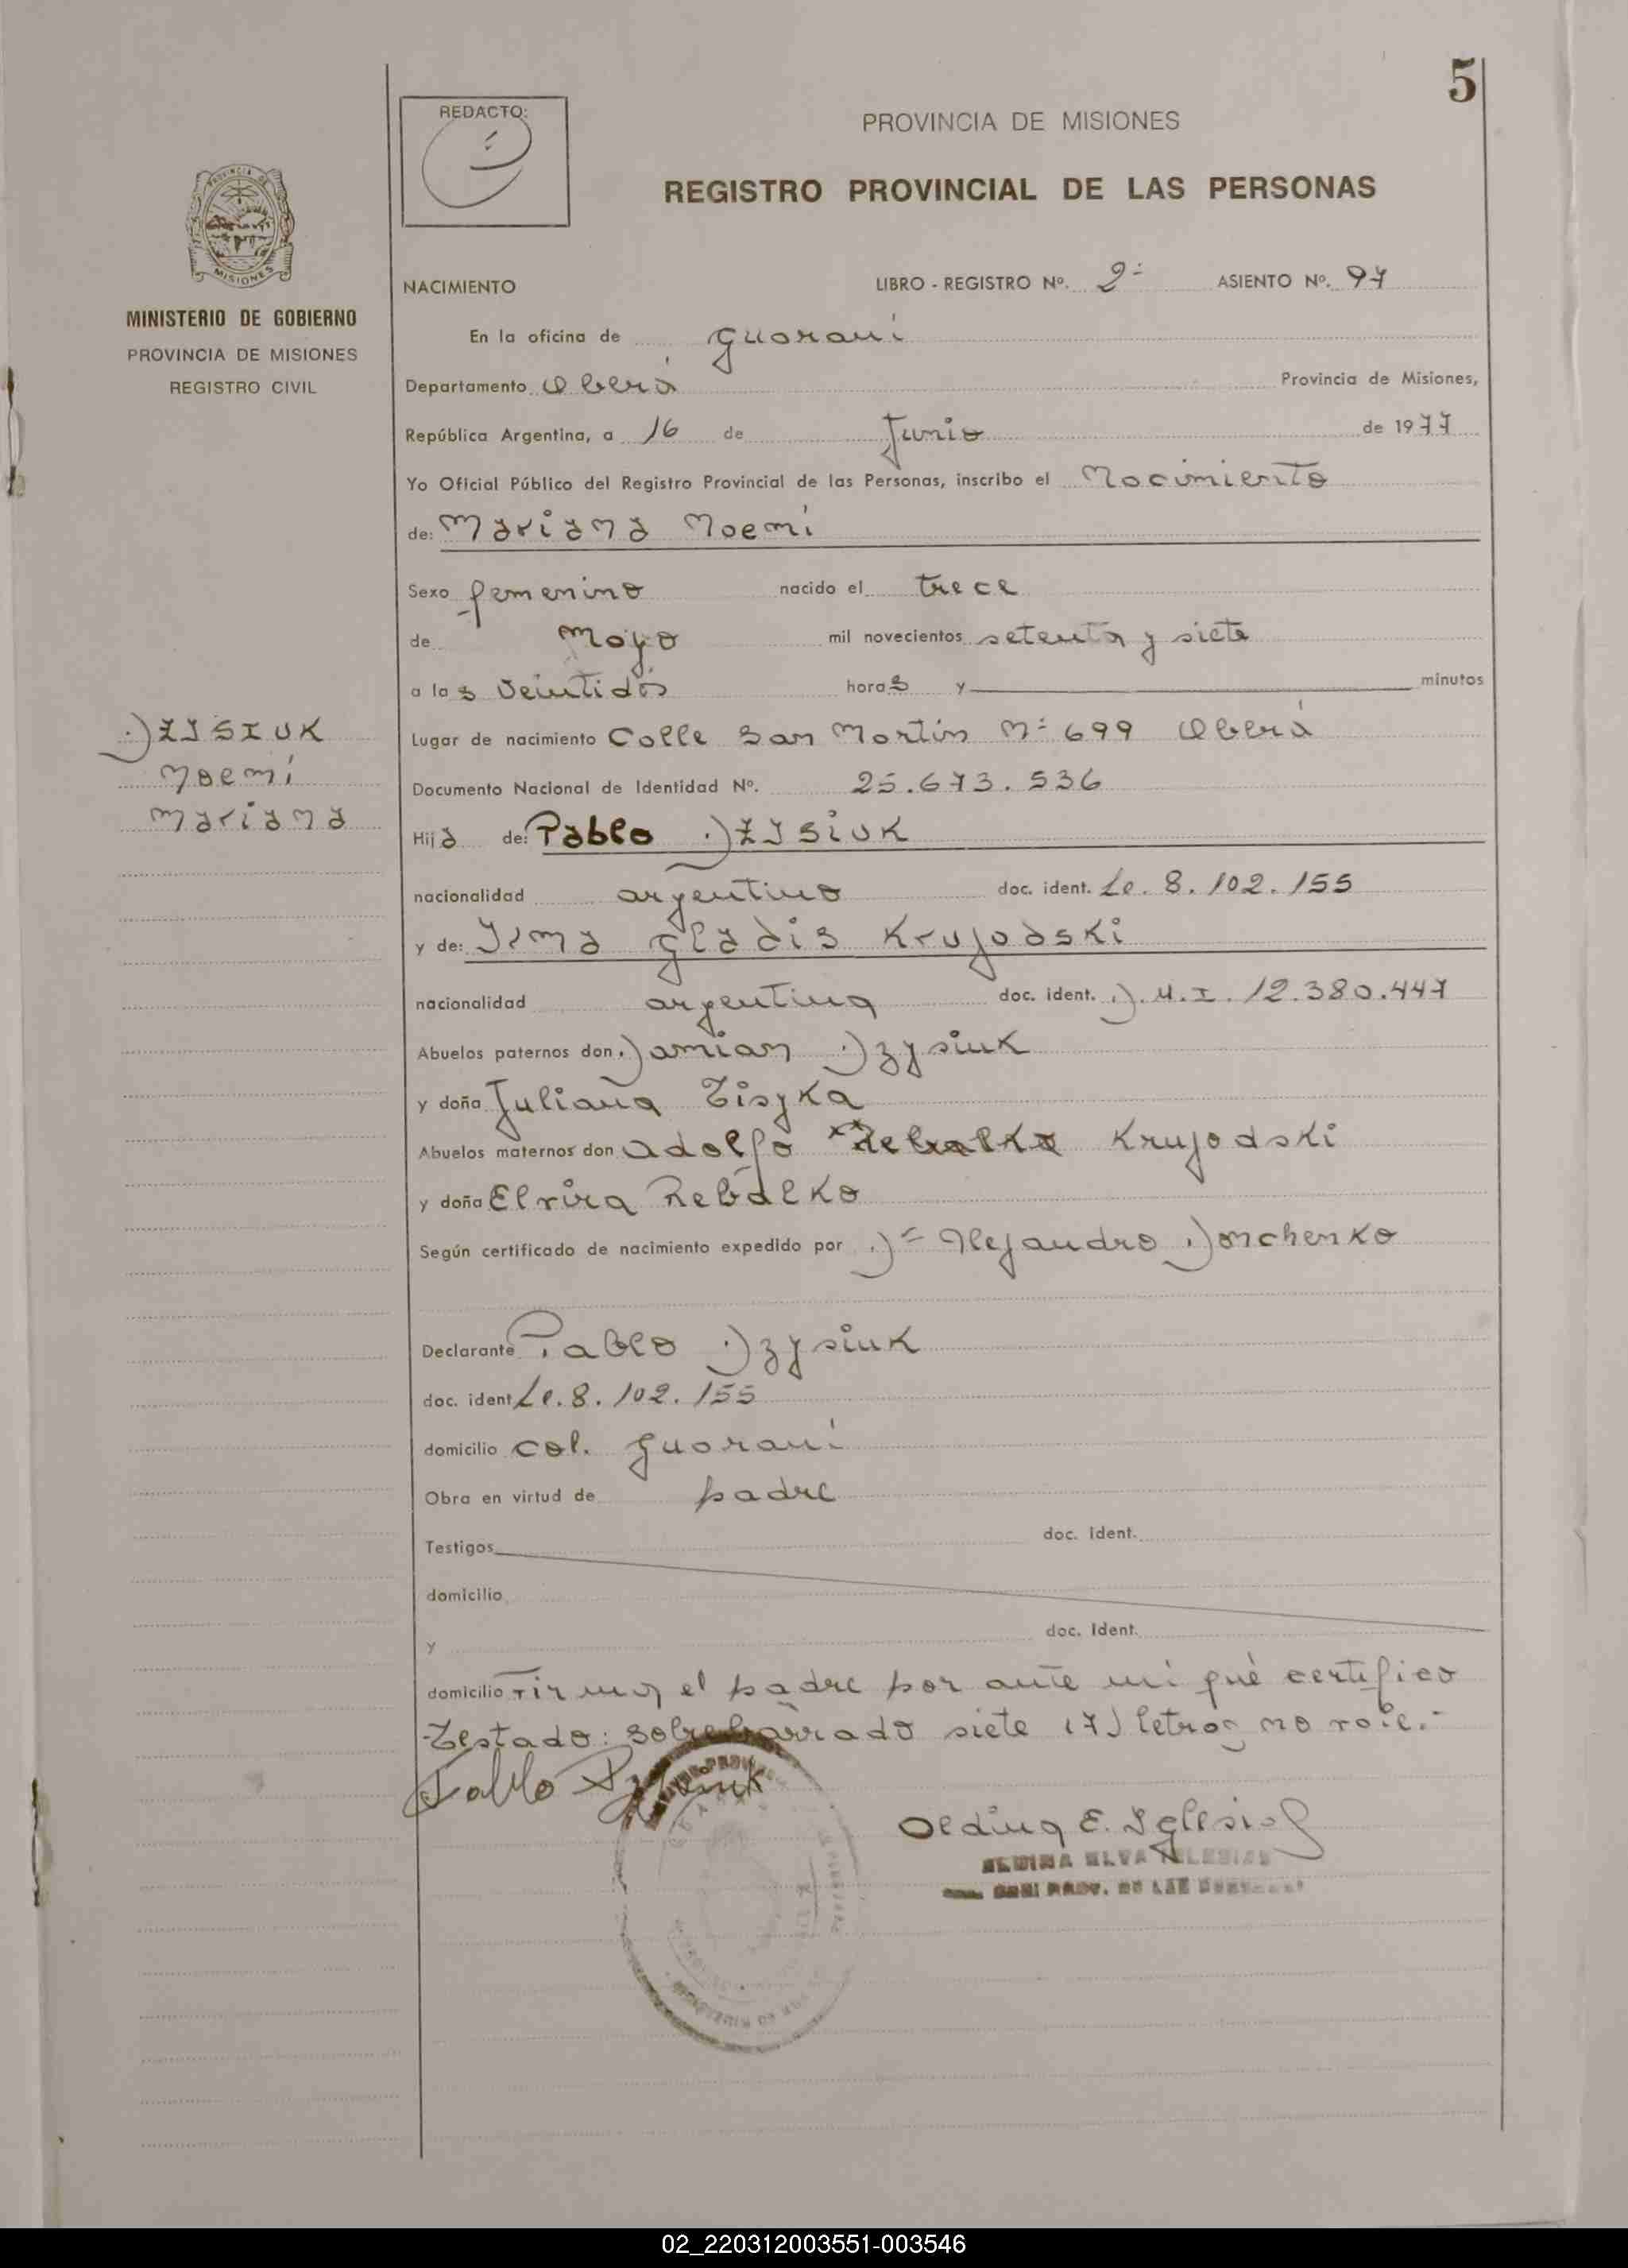 5
REDACTO:
PROVINCIA DE MISIONES
REGISTRO PROVINCIAL DE LAS PERSONAS
PROVINCIA DE
MISIONES
MINISTERIO DE GOBIERNO
PROVINCIA DE MISIONES
REGISTRO CIVIL
NACIMIENTO LIBRO - REGISTRO Nº. 2º ASIENTO Nº. 97
En la oficina de Guaraní
Departamento Oberá Provincia de Misiones,
República Argentina, a 16 de Junio de 1977
Yo Oficial Público del Registro Provincial de las Personas, inscribo el Nacimiento
de: Mariana Noemí
Sexo femenino nacido el trece
de Mayo mil novecientos setenta y siete
a las veintidós horas y minutos
DZYSIUK
Noemí
Mariana
Lugar de nacimiento Calle San Martín Nº 699 Oberá
Documento Nacional de Identidad Nº. 25.673.536
Hija de: Pablo DZYSIUK
nacionalidad argentino doc. ident. Le. 8.102.155
y de: Irma Gladis Krujodski
nacionalidad argentina doc. ident. D.N.I. 12.380.447
Abuelos paternos don Damian Dzysiuk
y doña Juliana Tisyka
Abuelos maternos don Adolfo Rebalko Krujodski
y doña Elvira Rebalko
Según certificado de nacimiento expedido por Dº Alejandro Donchenko
Declarante Pablo Dzysiuk
doc. ident Le. 8.102.155
domicilio col. Guaraní
Obra en virtud de padre
Testigos doc. Ident.
domicilio
y doc. Ident.
domicilio Firma el padre por ante mí qué certifico
Testado: sobrebarrado siete (7) letras no vale.-
Pablo Dzysiuk
Oldina E. Iglesias
ELVA IGLESIAS
02_220312003551-003546